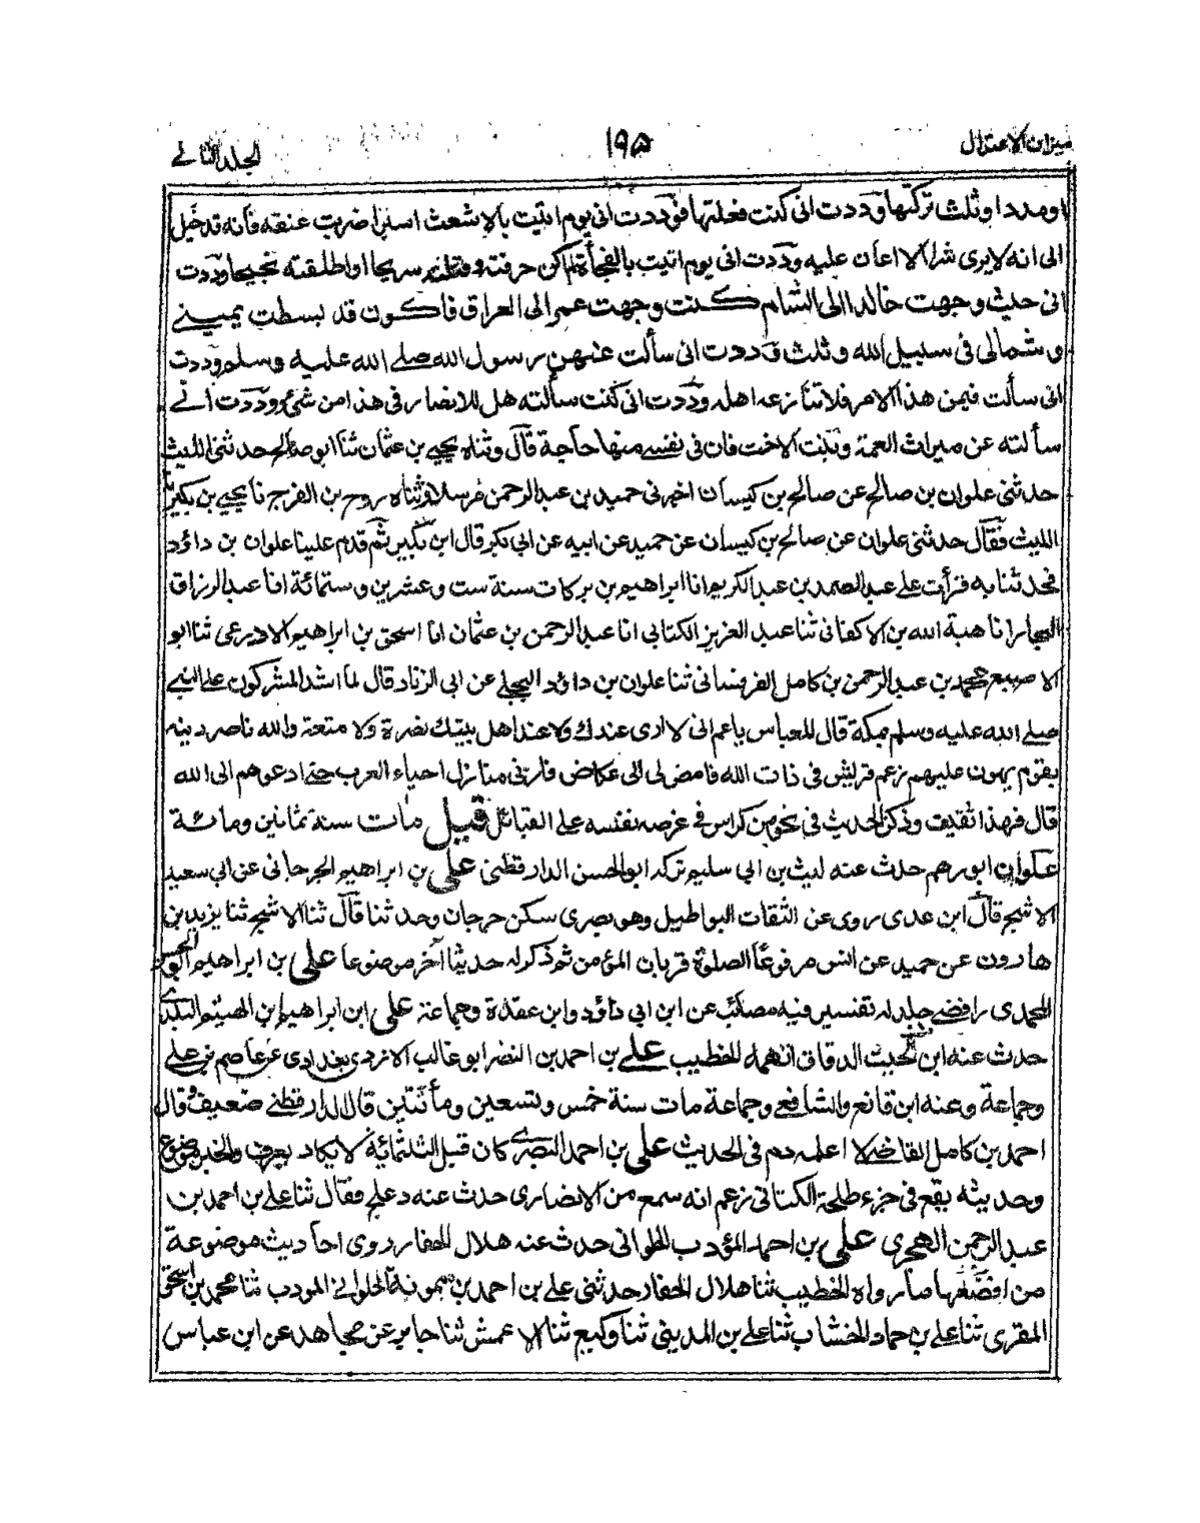 ميزان الاعتدال
١٩٥
الجلد الثانى
او مددا وثلث تركتها وددت انى كنت فعلتها فوددت انى يوم اتيت بالاشعث اسيرا ضربت عنقه فانه قد خيل
الى انه لا يرى شرا الا اعان عليه ووددت انى يوم اتيت بالفجأة لم اكن حرقته وقتلته سريحا او اطلقته نجيحا ووددت
انى حيث وجهت خالدا الى الشام كنت وجهت عمر الى العراق فاكون قد بسطت يمينى
وشمالى فى سبيل الله وثلث وددت انى سألت عنهن رسول الله صلى الله عليه وسلم وددت
انى سألت فيمن هذا الامر فلا تنازعه اهله ووددت انى كنت سألته هل للانصار فى هذا من شئ ووددت انى
سألته عن ميراث العمة وبنت الاخت فان فى نفسى منها حاجة قال وثناه يحيى بن عثمان ثنا ابو صالح حدثنى الليث
حدثنى علوان بن صالح عن صالح بن كيسان اخبرنى حميد بن عبد الرحمن مرسلا وثناه روح بن الفرج نا يحيى بن بكير ثنا
الليث فقال حدثنى علوان عن صالح بن كيسان عن حميد عن ابيه عن ابى بكر قال ابن بكير ثم قدم علينا علوان بن داؤد
فحدثنا به قرأت على عبد الصمد بن عبد الكريم انا ابراهيم بن بركات سنة ست وعشرين وستمائة انا عبد الرزاق
النجار انا هبة الله بن الاكفانى ثنا عبد العزيز الكتانى انا عبد الرحمن بن عثمان انا اسحق بن ابراهيم الاذرعى ثنا ابو
الاصبع محمد بن عبد الرحمن بن كامل القرقسانى ثنا علوان بن داؤد البجلى عن ابى الزناد قال لما اشتد المشركون على النبى
صلى الله عليه وسلم بمكة قال للعباس يا عم انى لا ارى عندك ولا عند اهل بيتك نصرة ولا متعة والله ناصر دينه
بقوم يهون عليهم زعم قريش فى ذات الله فامض لى الى عكاض فارنى منازل احياء العرب حتى ادعوهم الى الله
قال فهذا ثقيف وذكر الحديث فى نحو من كراس فى عرضه نفسه على القبائل قيل مات سنة ثمانين ومائة
علوان ابو رهم حدث عنه ليث بن ابى سليم تركه ابو الحسن الدارقطنى على بن ابراهيم الجرجانى عن ابى سعيد
الاشج قال ابن عدى روى عن الثقات البواطيل وهو بصرى سكن جرجان وحدثنا قال ثنا الاشج ثنا يزيد بن
هارون عن حميد عن انس مرفوعا الصلوة قربان المؤمن ثم ذكر له حديثا آخر موضوعا على بن ابراهيم ابو الحسن
المحمدى رافضى جلد له تفسير فيه مصائب عن ابن ابى داؤد وابن عقدة وجماعة على ابن ابراهيم ابن الهيثم البلدى
حدث عنه ابن بخيت الدقاق اتهمه الخطيب على بن احمد بن النضر ابو غالب الازدى بغدادى عن عاصم بن على
وجماعة وعنه ابن قانع والشافعى وجماعة مات سنة خمس وتسعين ومأتتين قال الدارقطنى ضعيف وقال
احمد بن كامل القاضى لا اعلمه ذم فى الحديث على بن احمد البصرى كان قبل الثلثمائة لا يكاد يعرف والخبر موضوع
وحديثه يقع فى جزء طلحة الكتانى زعم انه سمع من الانصارى حدث عنه دعلج فقال ثنا على بن احمد بن
عبد الرحمن الهجرى على بن احمد المؤدب الحلوانى حدث عنه هلال الحفار روى احاديث موضوعة
من افضعها ما رواه الخطيب ثنا هلال الحفار حدثنى على بن احمد بن ميمونة الحلوانى المودب ثنا محمد بن اسحق
المقرى ثنا على بن حماد الخشاب ثنا على بن المدينى ثنا وكيع ثنا الاعمش ثنا جابر عن مجاهد عن ابن عباس